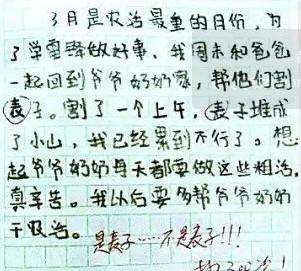 3月是农活最重的月份，为
了学雷锋做好事，我周末和爸爸
一起回到爷爷奶奶家，帮他们割
表子。割了一个上午，表子堆成
了小山，我已经累到不行了。想
起爷爷奶奶每天都要做这些粗活，
真辛苦。我以后要多帮爷爷奶奶
干农活。
是麦子……不是表子!!!